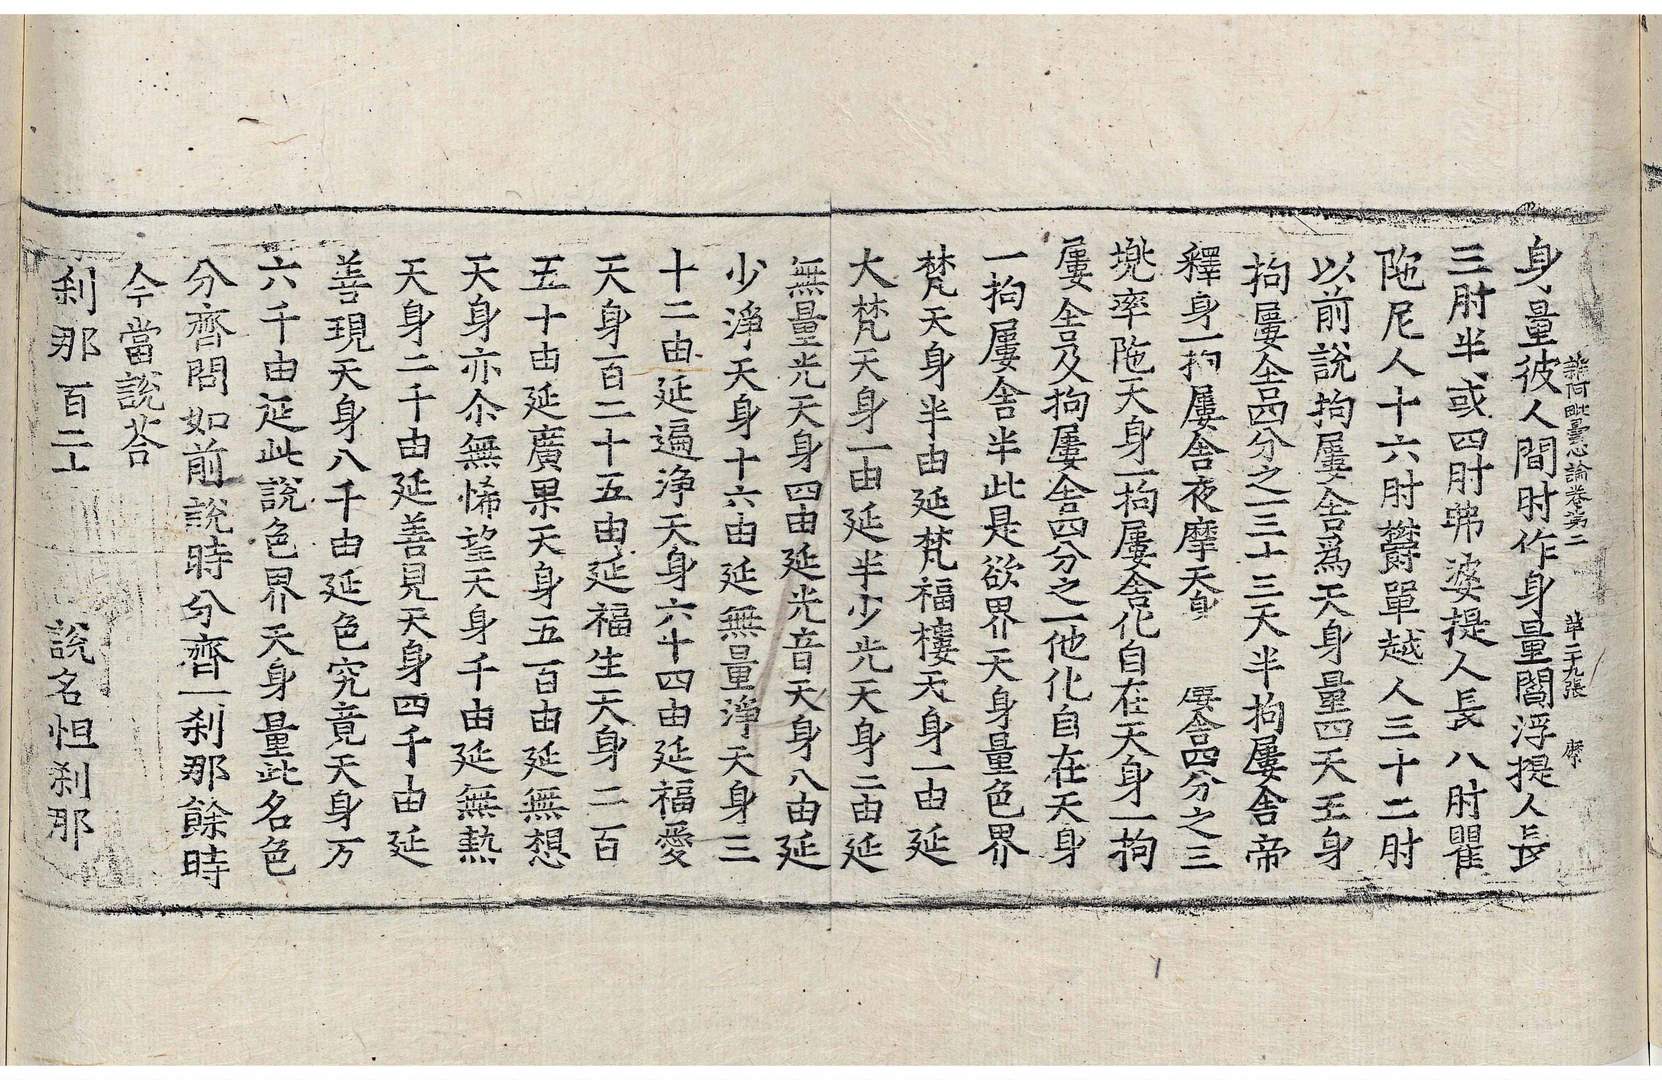 雜阿毗曇心論卷第二 第二十九張 縻
身量彼人間肘作身量閻浮提人長
三肘半或四肘弗婆提人長八肘瞿
陁尼人十六肘欝單越人三十二肘
以前說拘屢舍爲天身量四天王身
拘屢舍四分之一三十三天半拘屢舍帝
釋身一拘屢舍夜摩天身 屢舍四分之三
兠率陁天身一拘屢舍化自在天身一拘
屢舍及拘屢舍四分之一他化自在天身
一拘屢舍半此是欲界天身量色界
梵天身半由延梵福樓天身一由延
大梵天身一由延半少光天身二由延
無量光天身四由延光音天身八由延
少淨天身十六由延無量淨天身三
十二由延遍淨天身六十四由延福愛
天身百二十五由延福生天身二百
五十由延廣果天身五百由延無想
天身亦尒無悕望天身千由延無熱
天身二千由延善見天身四千由延
善現天身八千由延色究竟天身万
六千由延此說色界天身量此名色
分齊問如前說時分齊一刹那餘時
今當說荅
刹那百二十 說名怛刹那